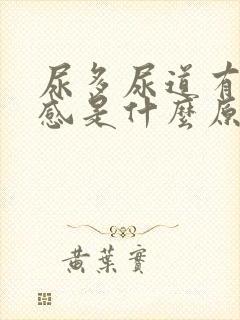 尿多尿道有
感是什麼原
黃葉實